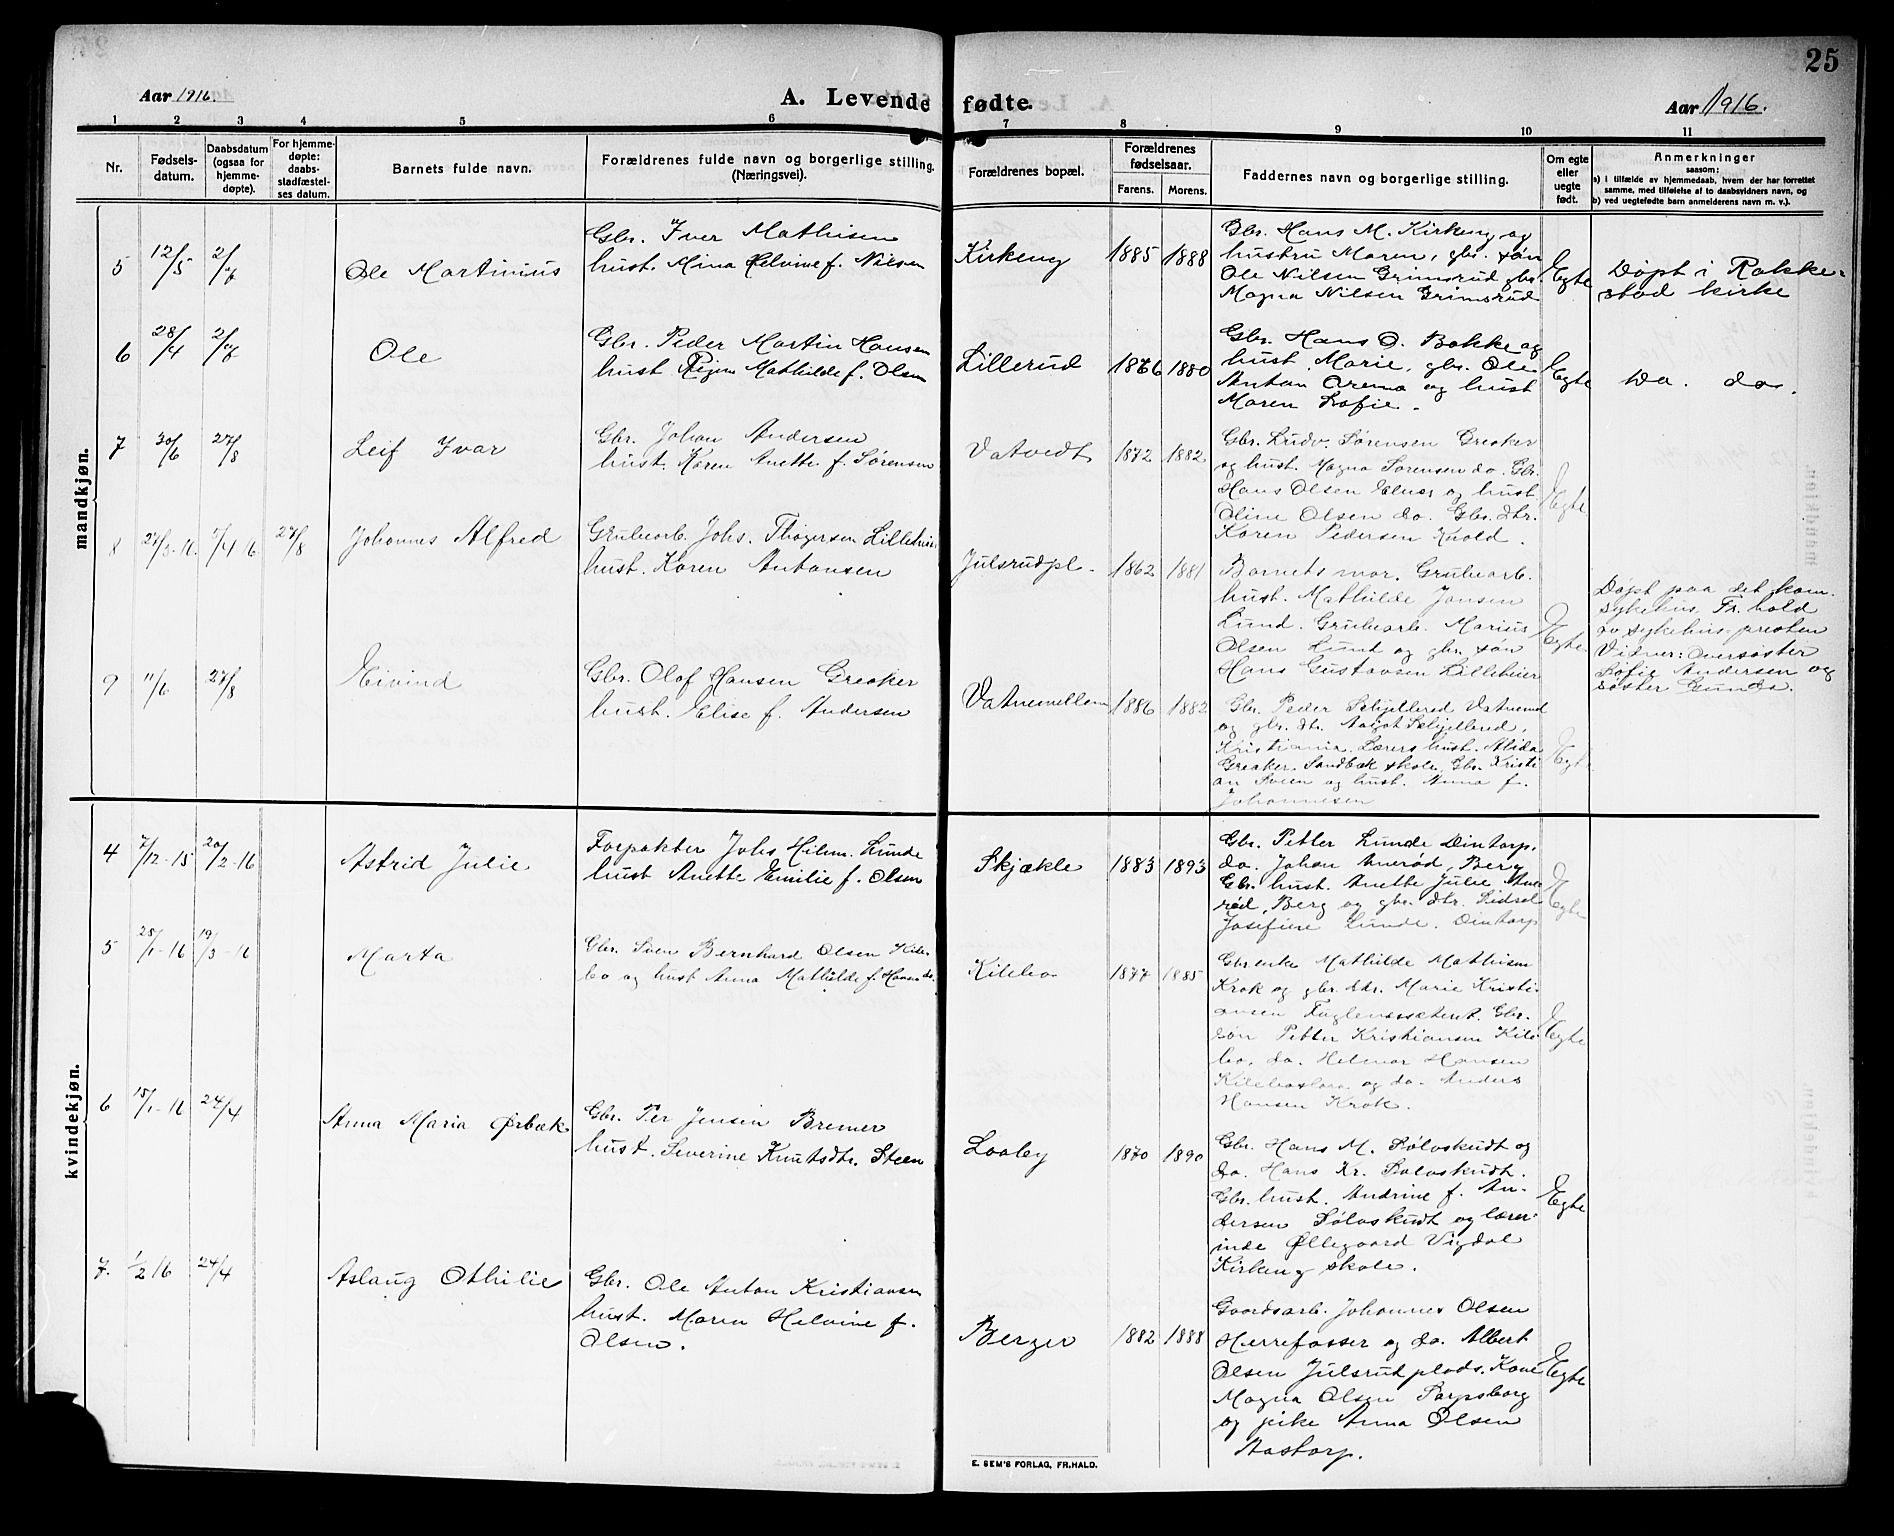 25
Aar 1916.
A. Levende fødte.
Aar 1916.
1 2 3 4 5 6 7 8 9 10 11
Nr.
Fødselsdatum.
Daabsdatum (ogsaa for hjemmedøpte).
For hjemmedøpte: daabsstadfæstelses datum.
Barnets fulde navn.
Forældrenes fulde navn og borgerlige stilling. (Næringsvei).
Forældrenes bopæl.
Forældrenes fødselsaar.
Farens. Morens.
Faddernes navn og borgerlige stilling.
Om egte eller uegte født.
Anmerkninger
saasom:
a) i tilfælde av hjemmedaab, hvem der har forrettet
samme, med tilføielse af to daabsvidners navn, og
b) ved uegtefødte barn anmelderens navn m. v.).
mandkjøn.
5 12/5
Ole Martinius
Gbr. Iver Mathisen
hust. Mina Helvine f. Nilsen
Kirkeng
1885 1888
Gbr. Hans M. Kirkeng og
hustru Maren, gbr. søn
Ole Nilsen Grimsrud gbr.
Magna Nilsen Grimsrud
Egte
Døpt i Rakke-
stad kirke
6 28/4
Ole
Gbr. Peder Martin Hansen
hust. Mathilde f. Olsen
Lillerud
1876 1880
Gbr. Hans O. Bakke og
hust. Marie, gbr. Ole
Anton og hust
Maren Sofie.
Egte
Do. do.
7 30/6 27/8
Leif Ivar
Gbr. Johan Andersen
hust. Karen Anette f. Sørensen
Vatvedt
1872 1882
Gbr. Ludv. Sørensen Greaker
og hust. Magna Sørensen do. Gbr.
Hans Olsen og hust
Oline Olsen do. Gbr. dtr.
Karen Pedersen
Egte
8 27/3-16. 7/4 16 27/8
Johannes Alfred
Grubearb. Johs. Thøgersen
hust. Karen Antonsen
Julsrudpl.
1862 1881
Barnets mor. Grubearb.
hust. Mathilde Jansen
Lund. Grubearb. Marius
Olsen Lund og gbr. søn
Hans Gustavsen Lilleheier
Egte
Døpt paa det kom.
sykehus, Fr.hald
av sykehuspresten
Vidner: Oversøster
Sofie Andersen og
søster Gunda.
9 11/6 27/8
Eivind
Gbr. Olaf Hansen Greaker
hust. Elise f. Andersen
Vatnemellem
1886 1882
Gbr. Peder Schjellerød
og gbr. dtr. Aagot Schjellerød,
Kristiania. Lærers hust. Alida
Greaker, Sandbæk skole, Gbr. Kristi-
an Sveen og hust. Anna f.
Johannesen
Egte
kvindekjøn.
4 7/12-15 20/2-16
Astrid Julie
Forpakter Johs Hilm. Lunde
hust Anette Emilie f. Olsen
Skjækle
1883 1893
Gbr. Petter Lunde Dintorp,
do. Johan Berg
Gbr. hust. Anette Julie
Berg og gbr. dtr. Sidsel
Josefine Lunde. Dintorp
Egte
5 25/1-16 19/3-16
Marta
Gbr. Sven Bernhard Olsen Kile-
bo og hust Anna Mathilde f. Hansen do.
Kilebo
1877 1885
Gbr.enke Mathilde Mathisen
Krok og gbr. dtr. Marie Kristi-
ansen Fuglenessæteret. Gbr.
søn Petter Kristiansen Kile-
bo, do. Helmer Hansen
og do. Anders
Hansen Krok.
Egte
6 15/1-16 24/4
Anna Maria Ørbæk
Gbr. Per Jensen Bremer
hust. Severine Knutsdtr. Steen
Laaby
1870 1890
Gbr. Hans M. Sølvskudt og
do. Hans Kr. Sølvskudt.
Gbr. hust. Andrine f. An-
dersen Sølvskudt og lærer-
inde Øllegaard Vigdal
Kirkeng skole.
Egte
7. 1/2 16 24/4
Aslaug Othilie
Gbr. Ole Anton Kristiansen
hust. Maren Helvine f.
Olsen.
Berger
1882 1888
Gaardsarb. Johannes Olsen
Herrefosser og do. Albert
Olsen Julsrut plads. Kone
Magna Olsen Sarpsborg
og pike Anna Olsen
Aastorp.
Egte
E. SEM'S FORLAG, FR.HALD.